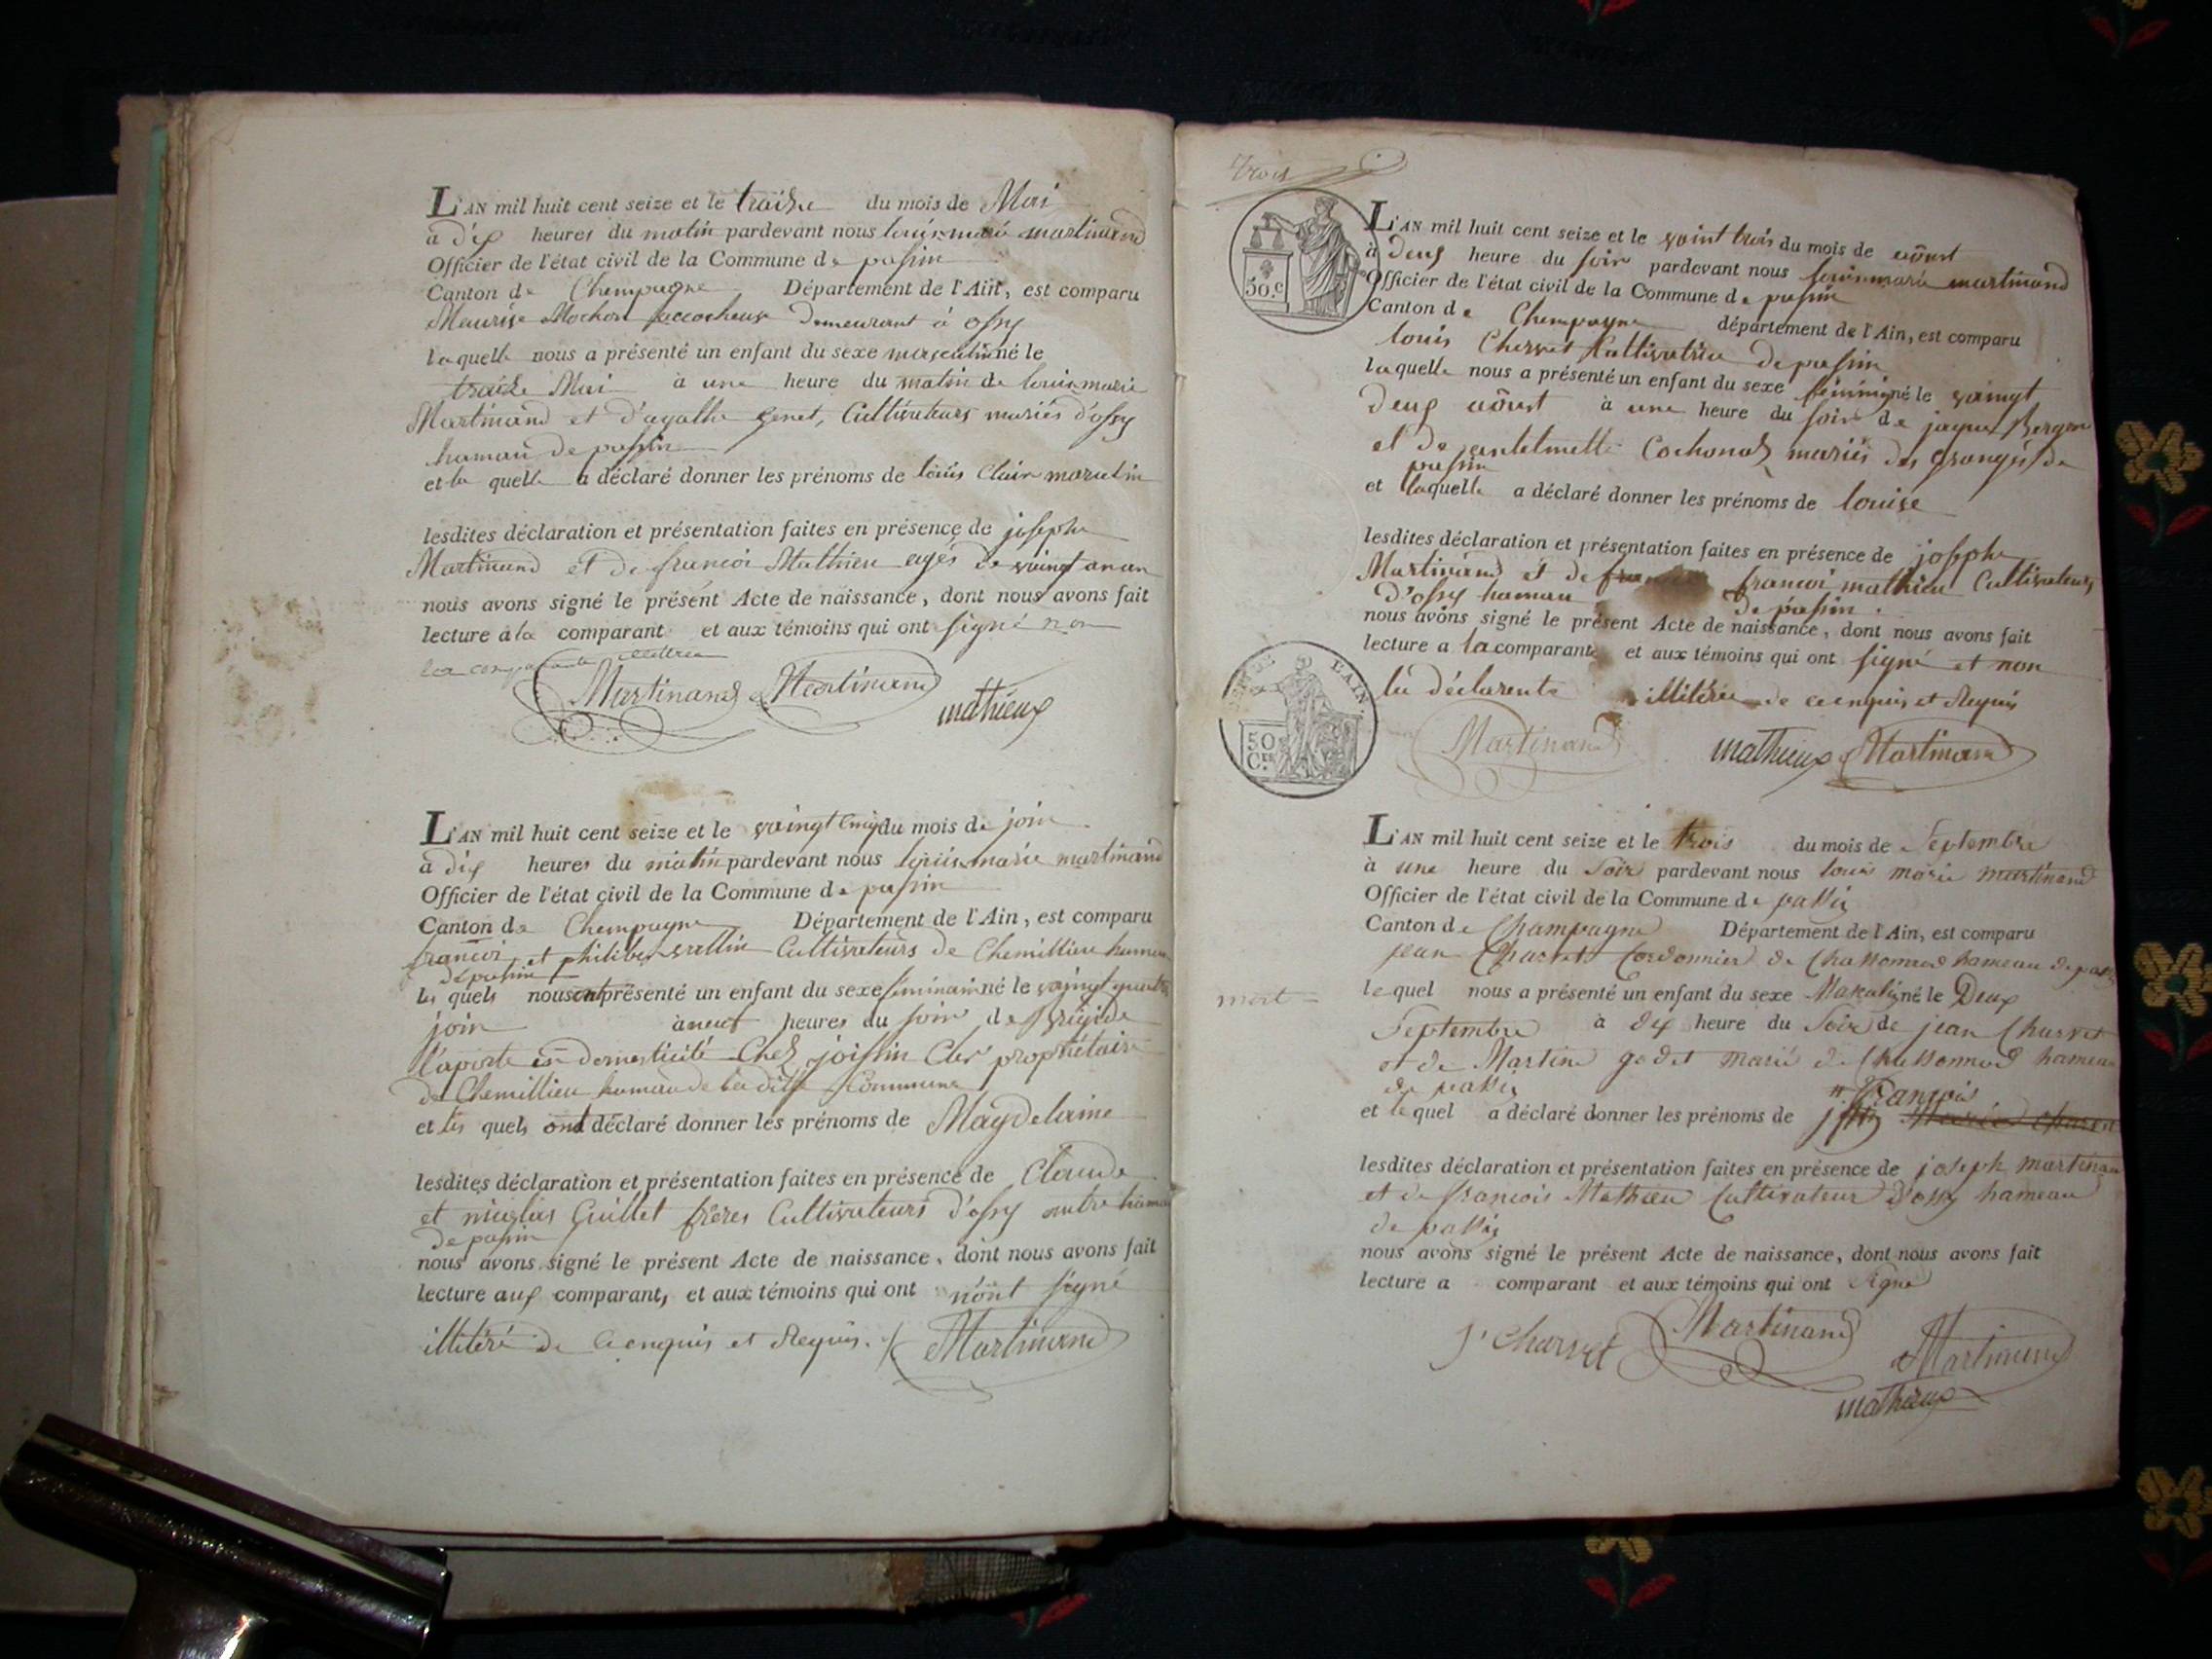 L'AN mil huit cent seize et le traize du mois de Mai
a dix heures du matin pardevant nous louis marie martinand
Officier de l'état civil de la Commune de passin
Canton de Chempagne Département de l'Ain, est comparu
Meurise Mochon accocheuse demeurant à ossy
laquelle nous a présenté un enfant du sexe masculin né le
traize Mai à une heure du matin de louis marie
Martinand et d'agathe genet, Cultivateurs mariés d'ossy
hamau de passin
et la quelle a déclaré donner les prénoms de louis Clair
lesdites déclaration et présentation faites en présence de josephe
Martinand et de francoi Mathieu agés de vaingt un an
nous avons signé le présent Acte de naissance, dont nous avons fait
lecture a la comparant et aux témoins qui ont signé non
la comparante
Martinand Martinand mathieux
L'AN mil huit cent seize et le vaingt cinq du mois de join
a dix heures du matin pardevant nous louis marie martinand
Officier de l'état civil de la Commune de passin
Canton de Chempagne Département de l'Ain, est comparu
francoi et philiber vellin Cultivateurs de Chemillieu hameau
de passin
les quels nous ont présenté un enfant du sexe féminain né le vaingt quatre
join a neuf heures du soir de Brigide
laporte en domesticité Chez joissin Cler propriétaire
de Chemillieu hamau de la ditte Commune
et les quels ont déclaré donner les prénoms de Magdelaine
lesdites déclaration et présentation faites en présence de Claude
et niculas Guillet frères Cultivateurs d'ossy autre hamau
de passin
nous avons signé le présent Acte de naissance, dont nous avons fait
lecture aux comparants et aux témoins qui ont n'ont signé
illitéré de ce enquis et Requis. Martinand
trois
50.c
L'AN mil huit cent seize et le vaint trois du mois de aôust
à deux heure du soir pardevant nous louis marie martinand
Officier de l'état civil de la Commune de passin
Canton de Chempagne département de l'Ain, est comparu
louis de passin
laquelle nous a présenté un enfant du sexe féminin né le vaingt
deux aôust à une heure du soir de jaques
et de antelmette Cochonat mariés des granges de
passin
et laquelle a déclaré donner les prénoms de louise
lesdites déclaration et présentation faites en présence de josephe
Martinand et de francoi mathieu Cultivateurs
d'ossy hamau de passin.
nous avons signé le présent Acte de naissance, dont nous avons fait
lecture a la comparante et aux témoins qui ont signé et non
la déclarente illitérée de ce enquis et Requis
L'AIN.
50 C.es
Martinand mathieux Martinand
L'AN mil huit cent seize et le trois du mois de Septembre
à une heure du Soir pardevant nous louis marie martinand
Officier de l'état civil de la Commune de passin
Canton de Champagne Département de l'Ain, est comparu
jean Charvet Cordonnier de Chassonnod hameau de passin
mort
le quel nous a présenté un enfant du sexe Maskulin né le Deux
Septembre à dix heure du Soir de jean Charvet
et de Martine godet marié de Chassonnod hameau
de passin
et le quel a déclaré donner les prénoms de françois
lesdites déclaration et présentation faites en présence de joseph martinand
et de francois Mathieu Cultivateur d'ossy hameau
de passin
nous avons signé le présent Acte de naissance, dont nous avons fait
lecture a comparant et aux témoins qui ont signé
j' Charvet Martinand Martinand
mathieux